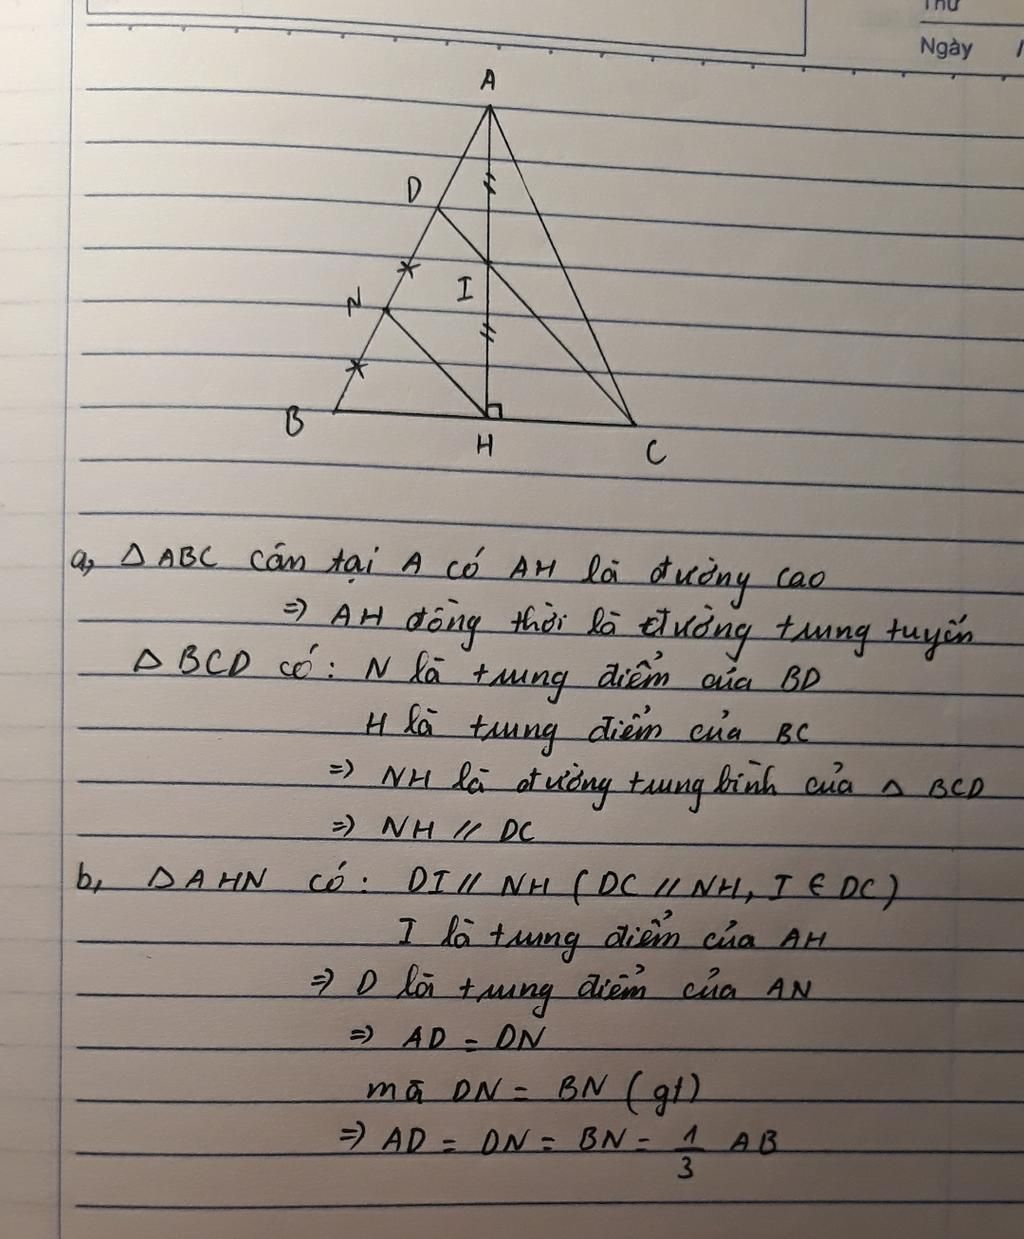 Thứ
Ngày /
A
D
I
N
B
H
C
a, △ABC cân tại A có AH là đường cao
=> AH đồng thời là đường trung tuyến
△ BCD có: N là trung điểm của BD
H là trung điểm của BC
=> NH là đường trung bình của △ BCD
=> NH // DC
b, △AHN có: DI // NH (DC // NH, I ∈ DC)
I là trung điểm của AH
=> D là trung điểm của AN
=> AD = DN
mà DN = BN (gt)
=> AD = DN = BN = 1/3 AB